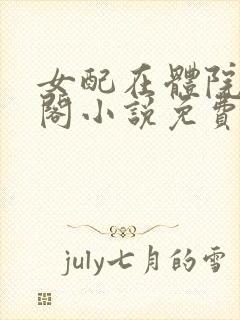 女配在體院
閣小說免費
july七月的雪